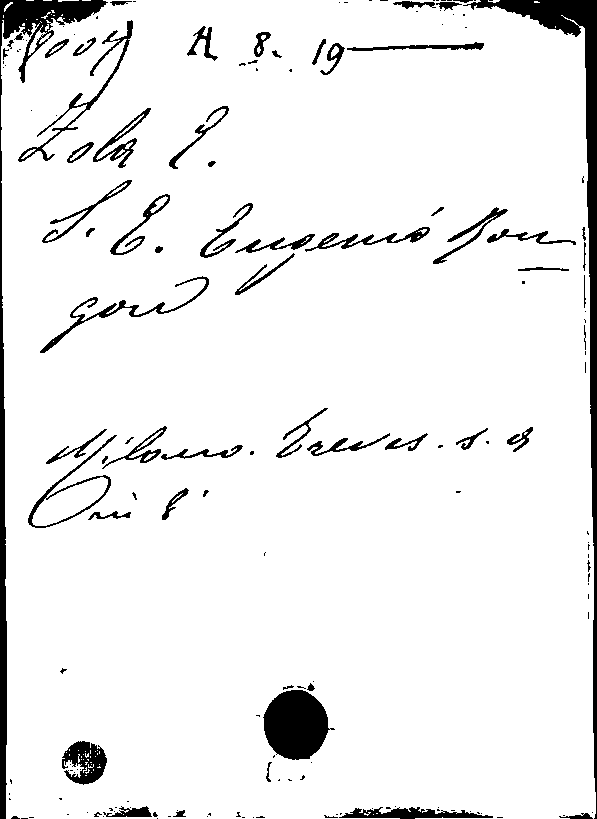 (8004) A. 8. 19
Zola E.
S. E. Eugenio Rou
gon
Milano. Treves. s. a
in 8°